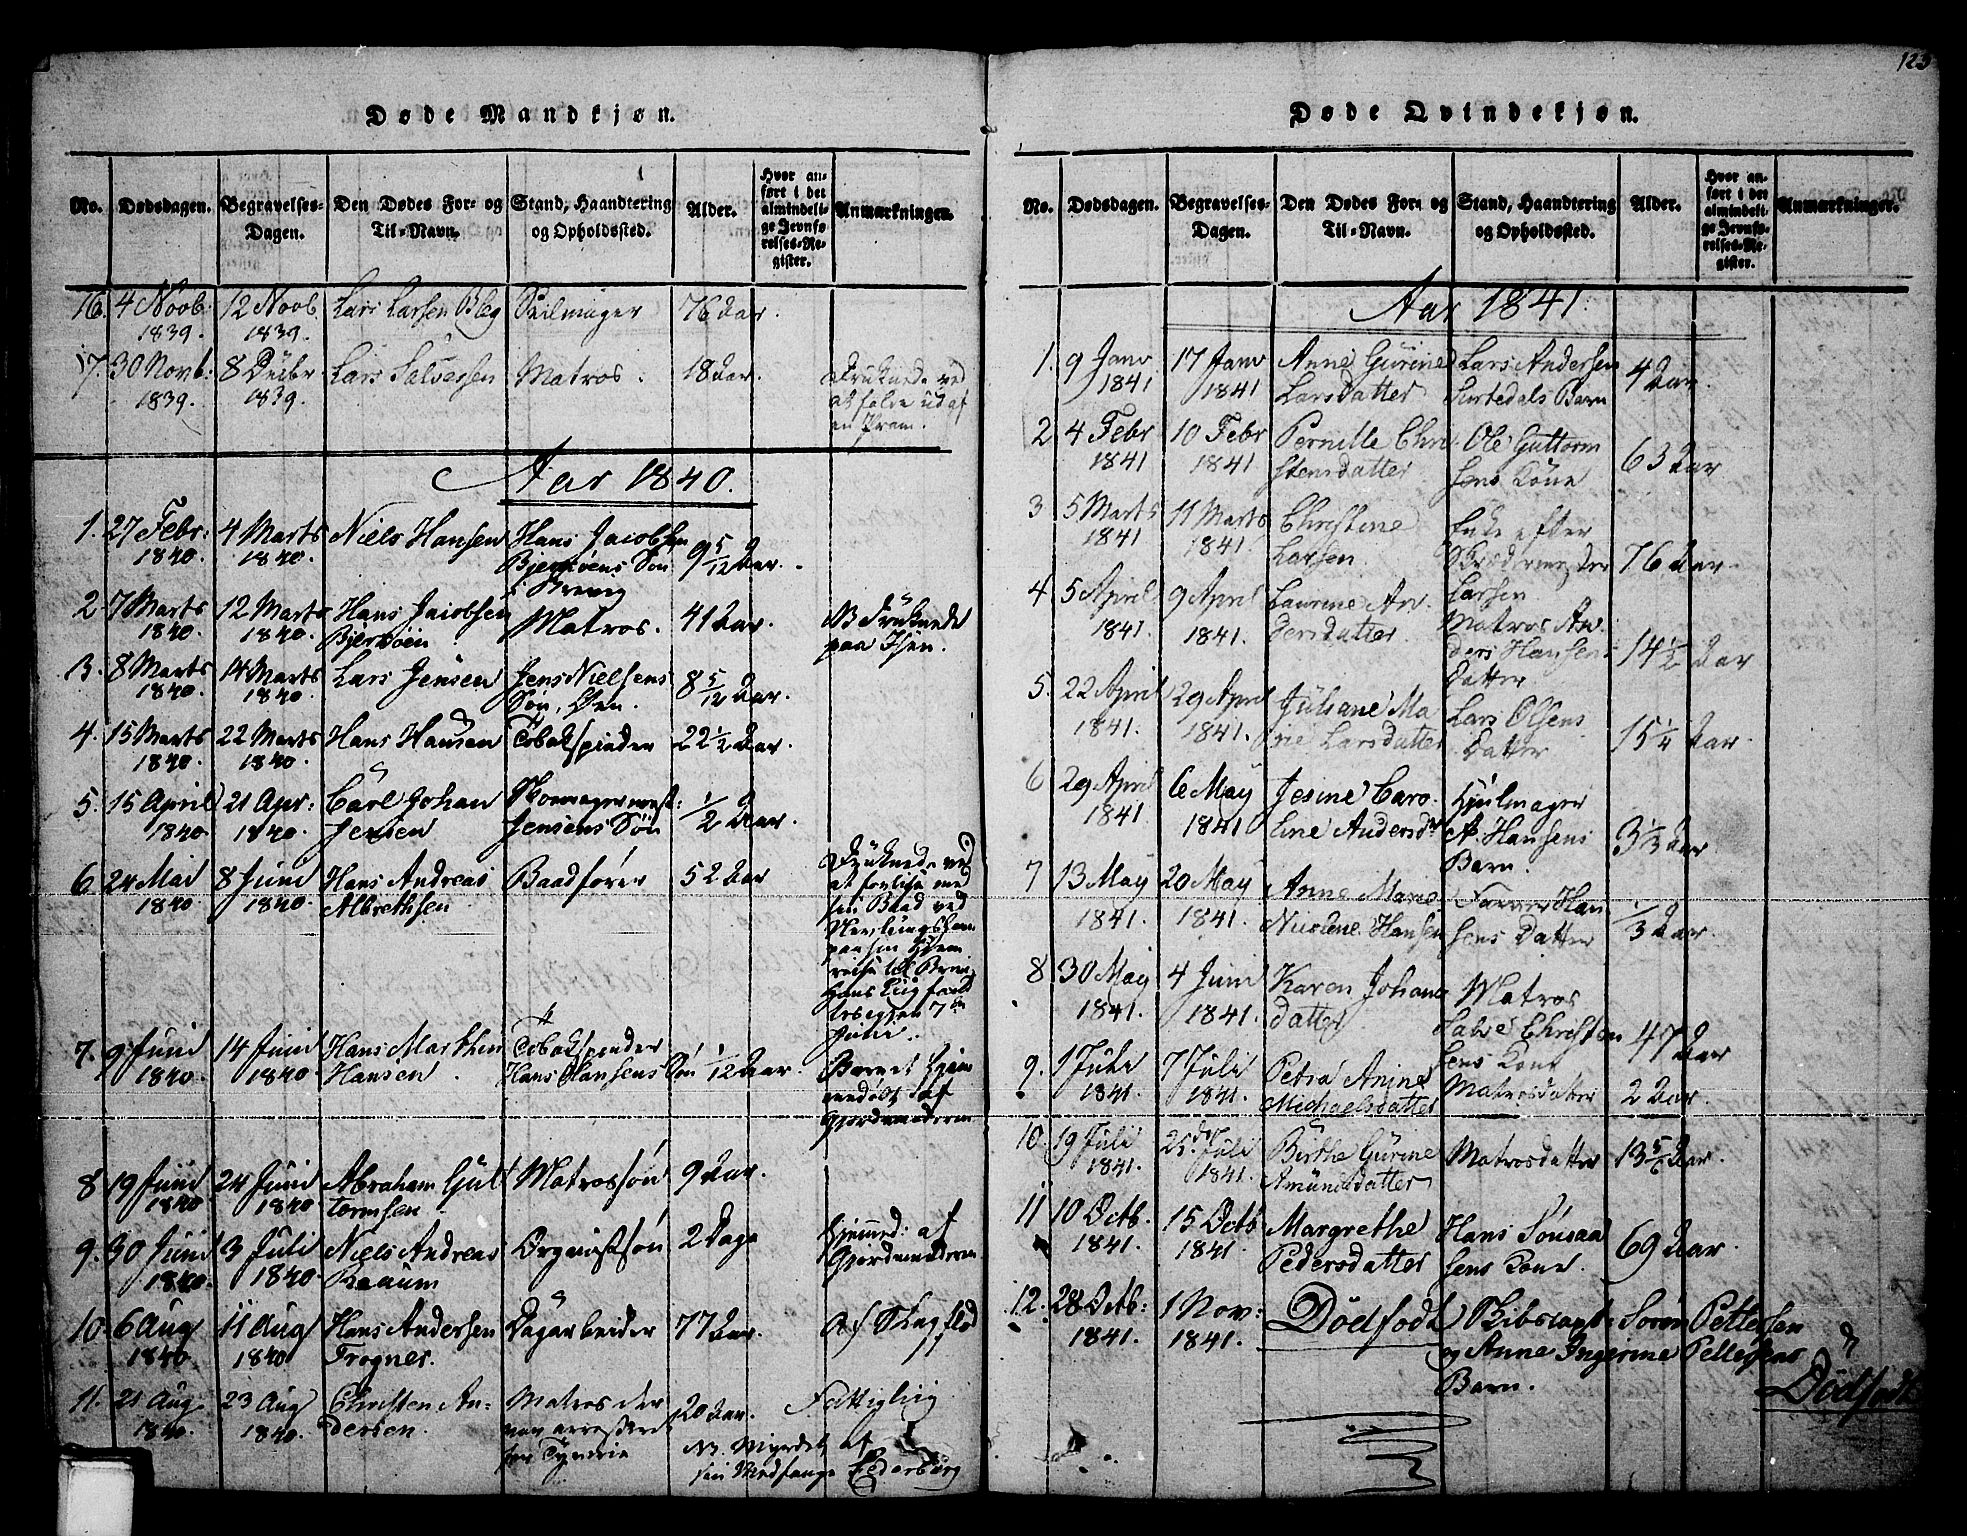 123
Døde Mandkjøn.
No. Dødsdagen. Begravelses-Dagen. Den Dødes For- og Til-Navn. Stand, Haandtering og Opholdssted. Alder. Hvor anført i det almindelige Jevnførelses-Register. Anmærkninger.
16. 4 Novb: 12 Novb. Lars Larsen Seilmager 76 Aar.
1839. 1839.
17. 30 Novb: 8 Decbr Lars Salvesen Matros. 18 Aar. Druknede ved
1839. 1839. at falde ud af
en Pram.
Aar 1840.
1. 27 Febr: 4 Marts Niels Hansen Hans Jacobsen 9 5/12 Aar.
1840. 1840. Søn
i Brevig
2. 7 Marts 12 Marts Hans Jacobsen Matros. 41 Aar. NB Druknede
1840. 1840. paa Isen.
3. 8 Marts 14 Marts Lars Jensen Jens Nielsens 8 5/12 Aar.
1840. 1840. Søn, Øen.
4. 15 Marts 22 Marts Hans Hansen Tobakspinder 22 1/2 Aar.
1840. 1840.
5. 15 April 21 Apr: Carl Johan Skomagermest: 1/2 Aar.
1840. 1840. Jensen Jensens Søn
6. 24 Mai 8 Juni Hans Andreas Baadfører 52 Aar Druknede ved
1840. 1840. Albrethsen at forlise med
sin Baad ved
paa sin Hjem
reise til Brevig
Hans Liig fandt
7de
Juni.
7. 9 Juni 14 Juni Hans Marthin Tobakspinder 1/12 Aar. Barnet hjem
1840. 1840. Hansen Hans Hansens Søn medøbt af
Gjordemoderen
8 19 Juni 24 Juni Abraham Gut Matrossøn 9 Aar.
1840 1840 tormsen
9. 30 Juni 3 Juli Niels Andreas Organistsøn 2 Dage Hjemmed: af
1840. 1840. Raaum Gjordemoderen
10. 6 Aug 11 Aug Hans Andersen Dagarbeider 77 Aar. Af Slagflod
1840. 1840 Frogner.
11. 21 Aug. 23 Aug Christen An- Matros der 20 Aar. Fattiglig
1840. 1840. dersen. var arresteret NB. Myrdet af
for Tyverie sin Medfange Cederborg
Døde Qvindekjøn.
No. Dødsdagen. Begravelses-Dagen. Den Dødes For- og Til-Navn. Stand, Haandtering og Opholdssted. Alder. Hvor anført i det almindelige Jevnførelses-Register. Anmærkninger.
Aar 1841.
1. 9 Janv 17 Janv Anne Gurine Lars Andersen 4 Aar.
1841 1841 Larsdatter Surtedals Barn
2 4 Febr 10 Febr Pernille Chri Ole Guttorm 63 Aar
1841 1841 stensdatter sens Kone
3 5 Marts 11 Marts Christine Enke efter 76 Aar.
1841 1841. Larsen. Skrædermester
Larsen.
4 5 April 9 April Laurine An- Matros An- 14 1/2 Aar
1841. 1841. dersdatter ders Hansens
Datter
5. 22 April 29 April Juliane Ma Lars Olsens 15 1/4 Aar
1841. 1841. rie Larsdatter Datter
6 29 April 6 May Jesine Caro- Hjulmager 3 1/3 Aar
1841 1841 line Andersd A. Hansens
Barn.
7 13 May 20 May Anne Marie Han 1/3 Aar.
1841. 1841. Nicoline Hansen sens Datter
8 30 May 4 Juni Karen Johans Matros 47 Aar
1841. 1841. datter Salve Christen
sens Kone
9. 1 Juli 7 Juli Petra Anine Matrosdatter 2 Aar
1841. 1841. Michaelsdatter
10. 19 Juli 25de Juli Birthe Gurine Matrosdatter 13 5/6 Aar.
1841. 1841. Amundsdatter
11 10 Octb. 15 Octb Margrethe Hans 69 Aar
1841. 1841 Pedersdatter sens Kone.
12. 28 Octb: 1 Nov: Dødfødt Søren Pettersen
1841. 1841. og Anne Ingerine Pettersens
Barn. Dødfødt